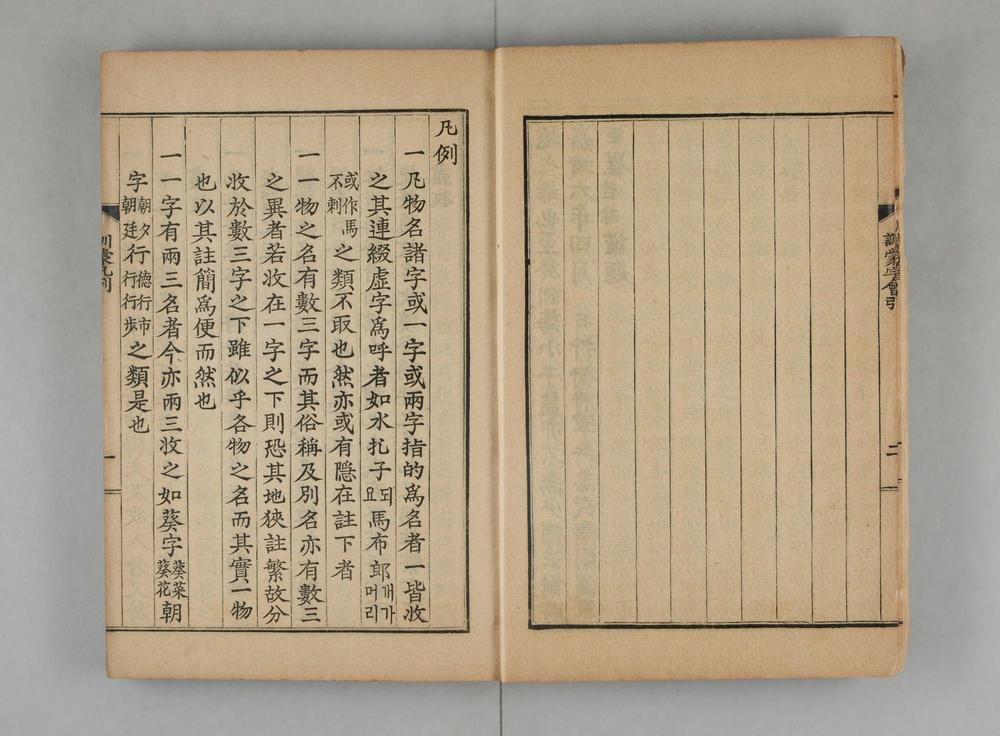 訓蒙字會引
二
凡例
一凡物名諸字或一字或兩字指的爲名者一皆收
之其連綴虛字爲呼者如水扎子 되요 馬布郎 개가머리
或作馬不剌 之類不取也然亦或有隱在註下者
一一物之名有數三字而其俗稱及別名亦有數三
之異者若收在一字之下則恐其地狹註繁故分
收於數三字之下雖似乎各物之名而其實一物
也以其註簡爲便而然也
一一字有兩三名者今亦兩三收之如葵字 葵菜葵花 朝
字 朝夕朝廷 行 德行市行行步 之類是也
訓蒙凡例
一